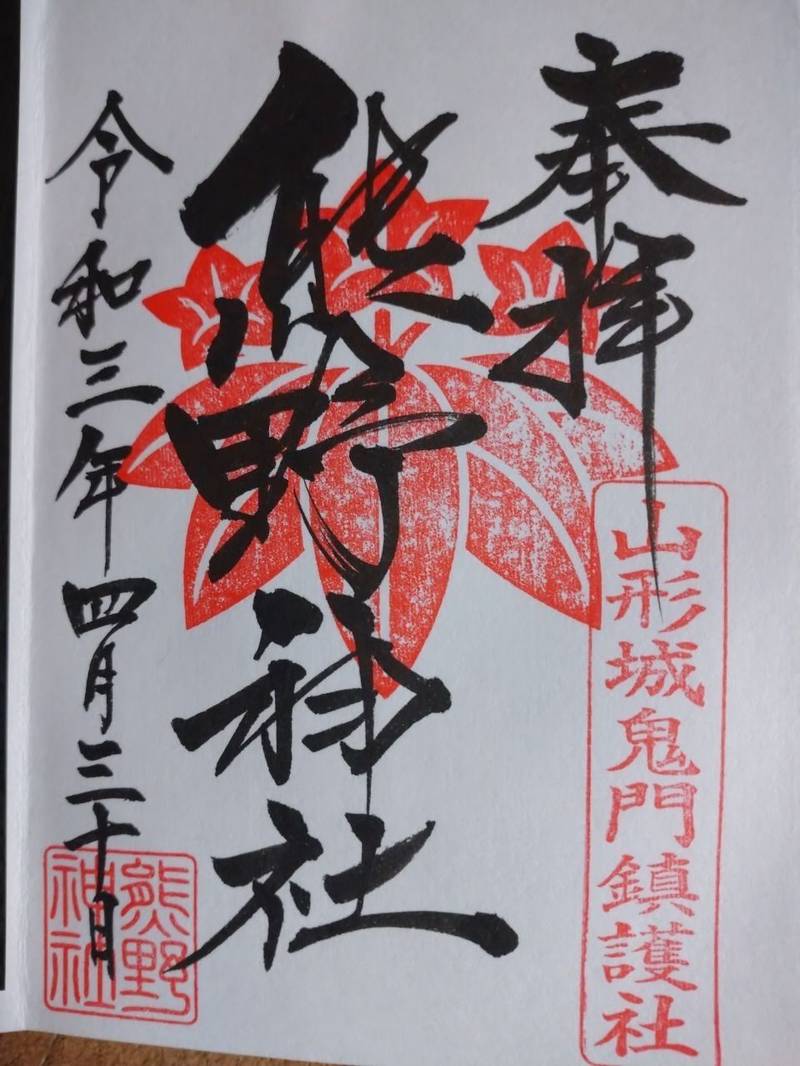 奉拝
山形城鬼門鎮護社
熊野神社
令和三年四月三十日
熊野
神社